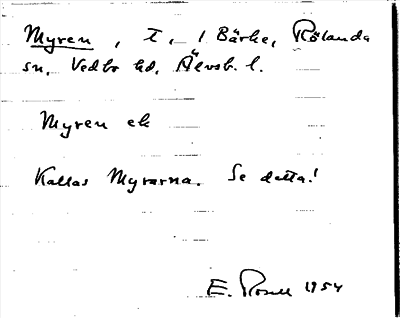 Myren, T., 1 Bärke, Rölanda
sn, Vedbo hd, Älvsb. l.
Myren ek
Kallas Myrarna. Se detta!
E. Rosell 1954